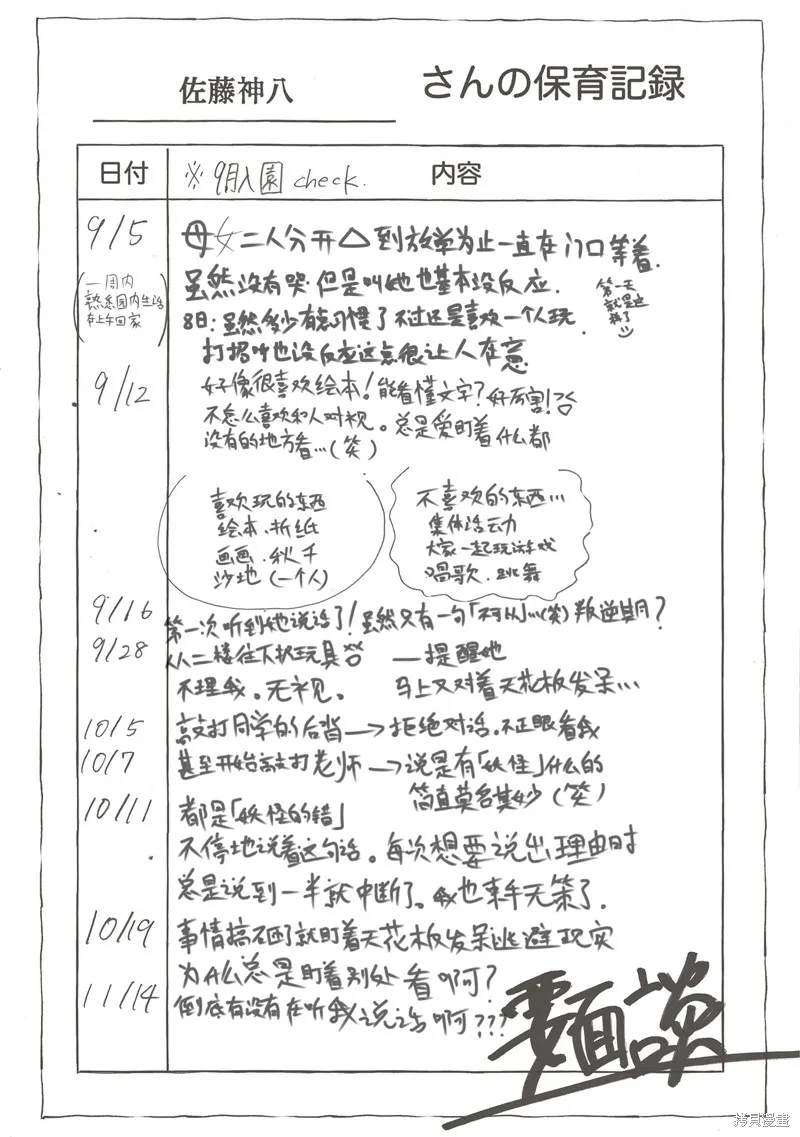 佐藤神八 さんの保育記録
日付 ※9月入園 check. 内容
9/5 母女二人分开△到放学为止一直在门口等着.
(一周内
熟悉园内生活
在上午回家)
虽然没有哭.但是叫她也基本没反应.
第一天
就是这
样了
8日:虽然多少有点习惯了 不过还是喜欢一个人玩.
打招呼也没反应这点很让人在意
9/12 好像很喜欢绘本!能看懂文字?好厉害!
不怎么喜欢和人对视。总是爱盯着什么都
没有的地方看…(笑)
喜欢玩的东西
绘本、折纸
画画、秋千
沙地(一个人)
不喜欢的东西…
集体活动
大家一起玩游戏
唱歌、跳舞
9/16 第一次听到她说话了!虽然只有一句「不可以」…(笑)叛逆期?
9/28 从二楼往下扒玩具 —提醒她
不理我。无视。 马上又对着天花板发呆…
10/5 敲打同学的后背→拒绝对话。不正眼看我
10/7 甚至开始敲打老师→说是有「妖怪」什么的
简直莫名其妙(笑)
10/11 都是「妖怪的错」
不停地说着这句话。每次想要说出理由时
总是说到一半就中断了。我也束手无策了.
10/19 事情搞砸了就盯着天花板发呆逃避现实
为什么总是盯着别处看啊?
11/14 倒底有没有在听我说话啊???
要面谈
拷貝漫畫